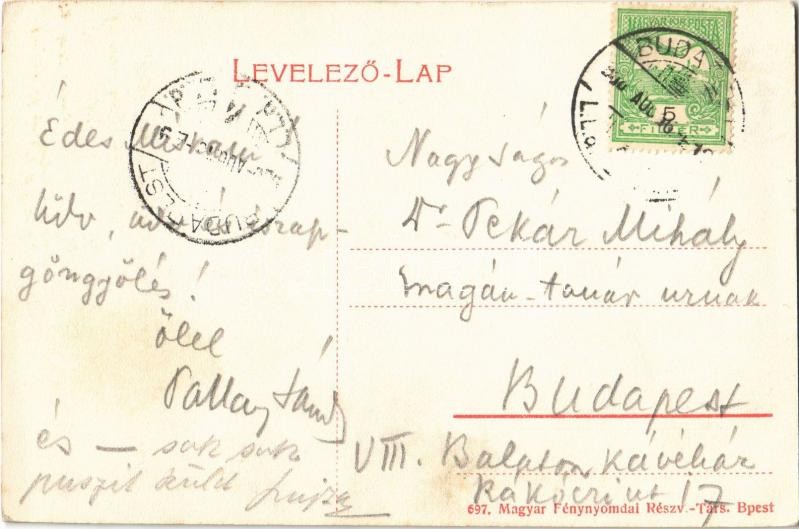 LEVELEZŐ-LAP
MAGYAR KIR. POSTA
BUDA
5
FILLÉR
BUDAPEST
Édes Miskám
üdv,
göngyölés!
ölel
és — sok sok
puszit küld
Nagyságos
Dr Pekár Mihály
magán-tanár urnak
Budapest
VIII. Balaton kávéház
Rákóczi út 17
697. Magyar Fénynyomdai Részv.-Társ. Bpest